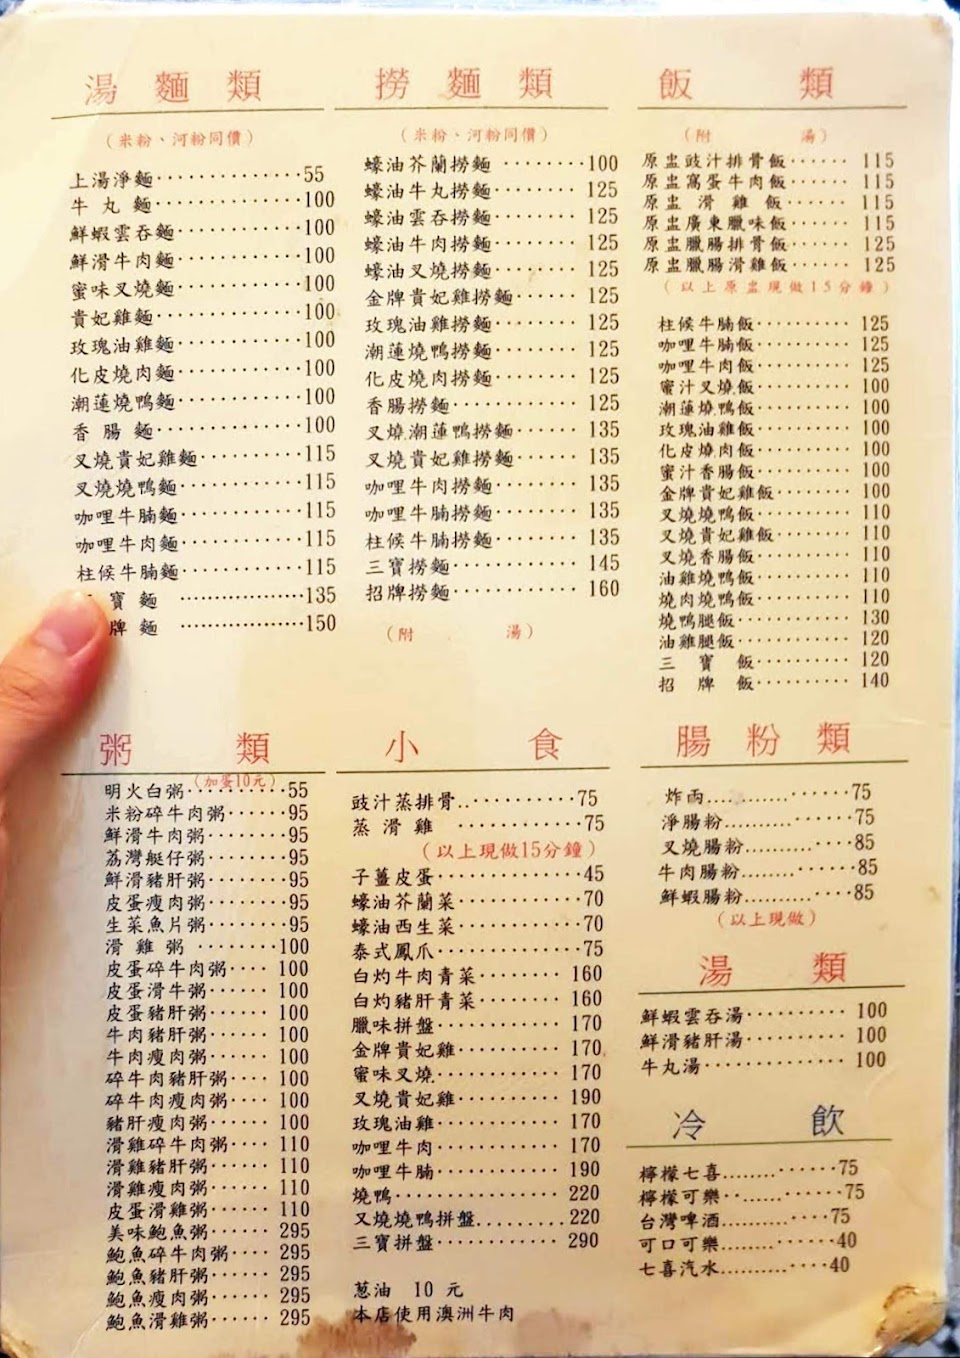 湯麵類
（米粉、河粉同價）
上湯淨麵··············55
牛丸麵··············100
鮮蝦雲吞麵············100
鮮滑牛肉麵············100
蜜味叉燒麵············100
貴妃雞麵··············100
玫瑰油雞麵············100
化皮燒肉麵············100
潮蓮燒鴨麵············100
香腸麵··············100
叉燒貴妃雞麵··········115
叉燒燒鴨麵············115
咖哩牛腩麵············115
咖哩牛肉麵············115
柱候牛腩麵············115
寶麵··················135
牌麵··················150
撈麵類
（米粉、河粉同價）
蠔油芥蘭撈麵········100
蠔油牛丸撈麵········125
蠔油雲吞撈麵········125
蠔油牛肉撈麵········125
蠔油叉燒撈麵········125
金牌貴妃雞撈麵······125
玫瑰油雞撈麵········125
潮蓮燒鴨撈麵········125
化皮燒肉撈麵········125
香腸撈麵············125
叉燒潮蓮鴨撈麵······135
叉燒貴妃雞撈麵······135
咖哩牛肉撈麵········135
咖哩牛腩撈麵········135
柱候牛腩撈麵········135
三寶撈麵············145
招牌撈麵············160
（附湯）
飯類
（附湯）
原盅豉汁排骨飯······115
原盅窩蛋牛肉飯······115
原盅滑雞飯······115
原盅廣東臘味飯······115
原盅臘腸排骨飯······125
原盅臘腸滑雞飯······125
（以上原盅現做15分鐘）
柱候牛腩飯··········125
咖哩牛腩飯··········125
咖哩牛肉飯··········125
蜜汁叉燒飯··········100
潮蓮燒鴨飯··········100
玫瑰油雞飯··········100
化皮燒肉飯··········100
蜜汁香腸飯··········100
金牌貴妃雞飯········100
叉燒燒鴨飯··········110
叉燒貴妃雞飯········110
叉燒香腸飯··········110
油雞燒鴨飯··········110
燒肉燒鴨飯··········110
燒鴨腿飯············130
油雞腿飯············120
三寶飯··········120
招牌飯··········140
粥類
（加蛋10元）
明火白粥··········55
米粉碎牛肉粥······95
鮮滑牛肉粥········95
荔灣艇仔粥········95
鮮滑豬肝粥········95
皮蛋瘦肉粥········95
生菜魚片粥········95
滑雞粥········100
皮蛋碎牛肉粥····100
皮蛋滑牛粥······100
皮蛋豬肝粥······100
牛肉豬肝粥······100
牛肉瘦肉粥······100
碎牛肉豬肝粥····100
碎牛肉瘦肉粥····100
豬肝瘦肉粥······100
滑雞碎牛肉粥····110
滑雞豬肝粥······110
滑雞瘦肉粥······110
皮蛋滑雞粥······110
美味鮑魚粥······295
鮑魚碎牛肉粥····295
鮑魚豬肝粥······295
鮑魚瘦肉粥······295
鮑魚滑雞粥······295
小食
豉汁蒸排骨..··········75
蒸滑雞············75
（以上現做15分鐘）
子薑皮蛋············45
蠔油芥蘭菜··········70
蠔油西生菜··········70
泰式鳳爪············75
白灼牛肉青菜········160
白灼豬肝青菜········160
臘味拼盤············170
金牌貴妃雞··········170
蜜味叉燒············170
叉燒貴妃雞··········190
玫瑰油雞············170
咖哩牛肉············170
咖哩牛腩············190
燒鴨················220
叉燒燒鴨拼盤.........220
三寶拼盤············290
蔥油 10元
本店使用澳洲牛肉
腸粉類
炸両............·····75
淨腸粉..........······75
叉燒腸粉..........····85
牛肉腸粉........······85
鮮蝦腸粉..........····85
（以上現做）
湯類
鮮蝦雲吞湯··········100
鮮滑豬肝湯··········100
牛丸湯··············100
冷飲
檸檬七喜........······75
檸檬可樂··........·····75
台灣啤酒..........····75
可口可樂..........····40
七喜汽水..........····40